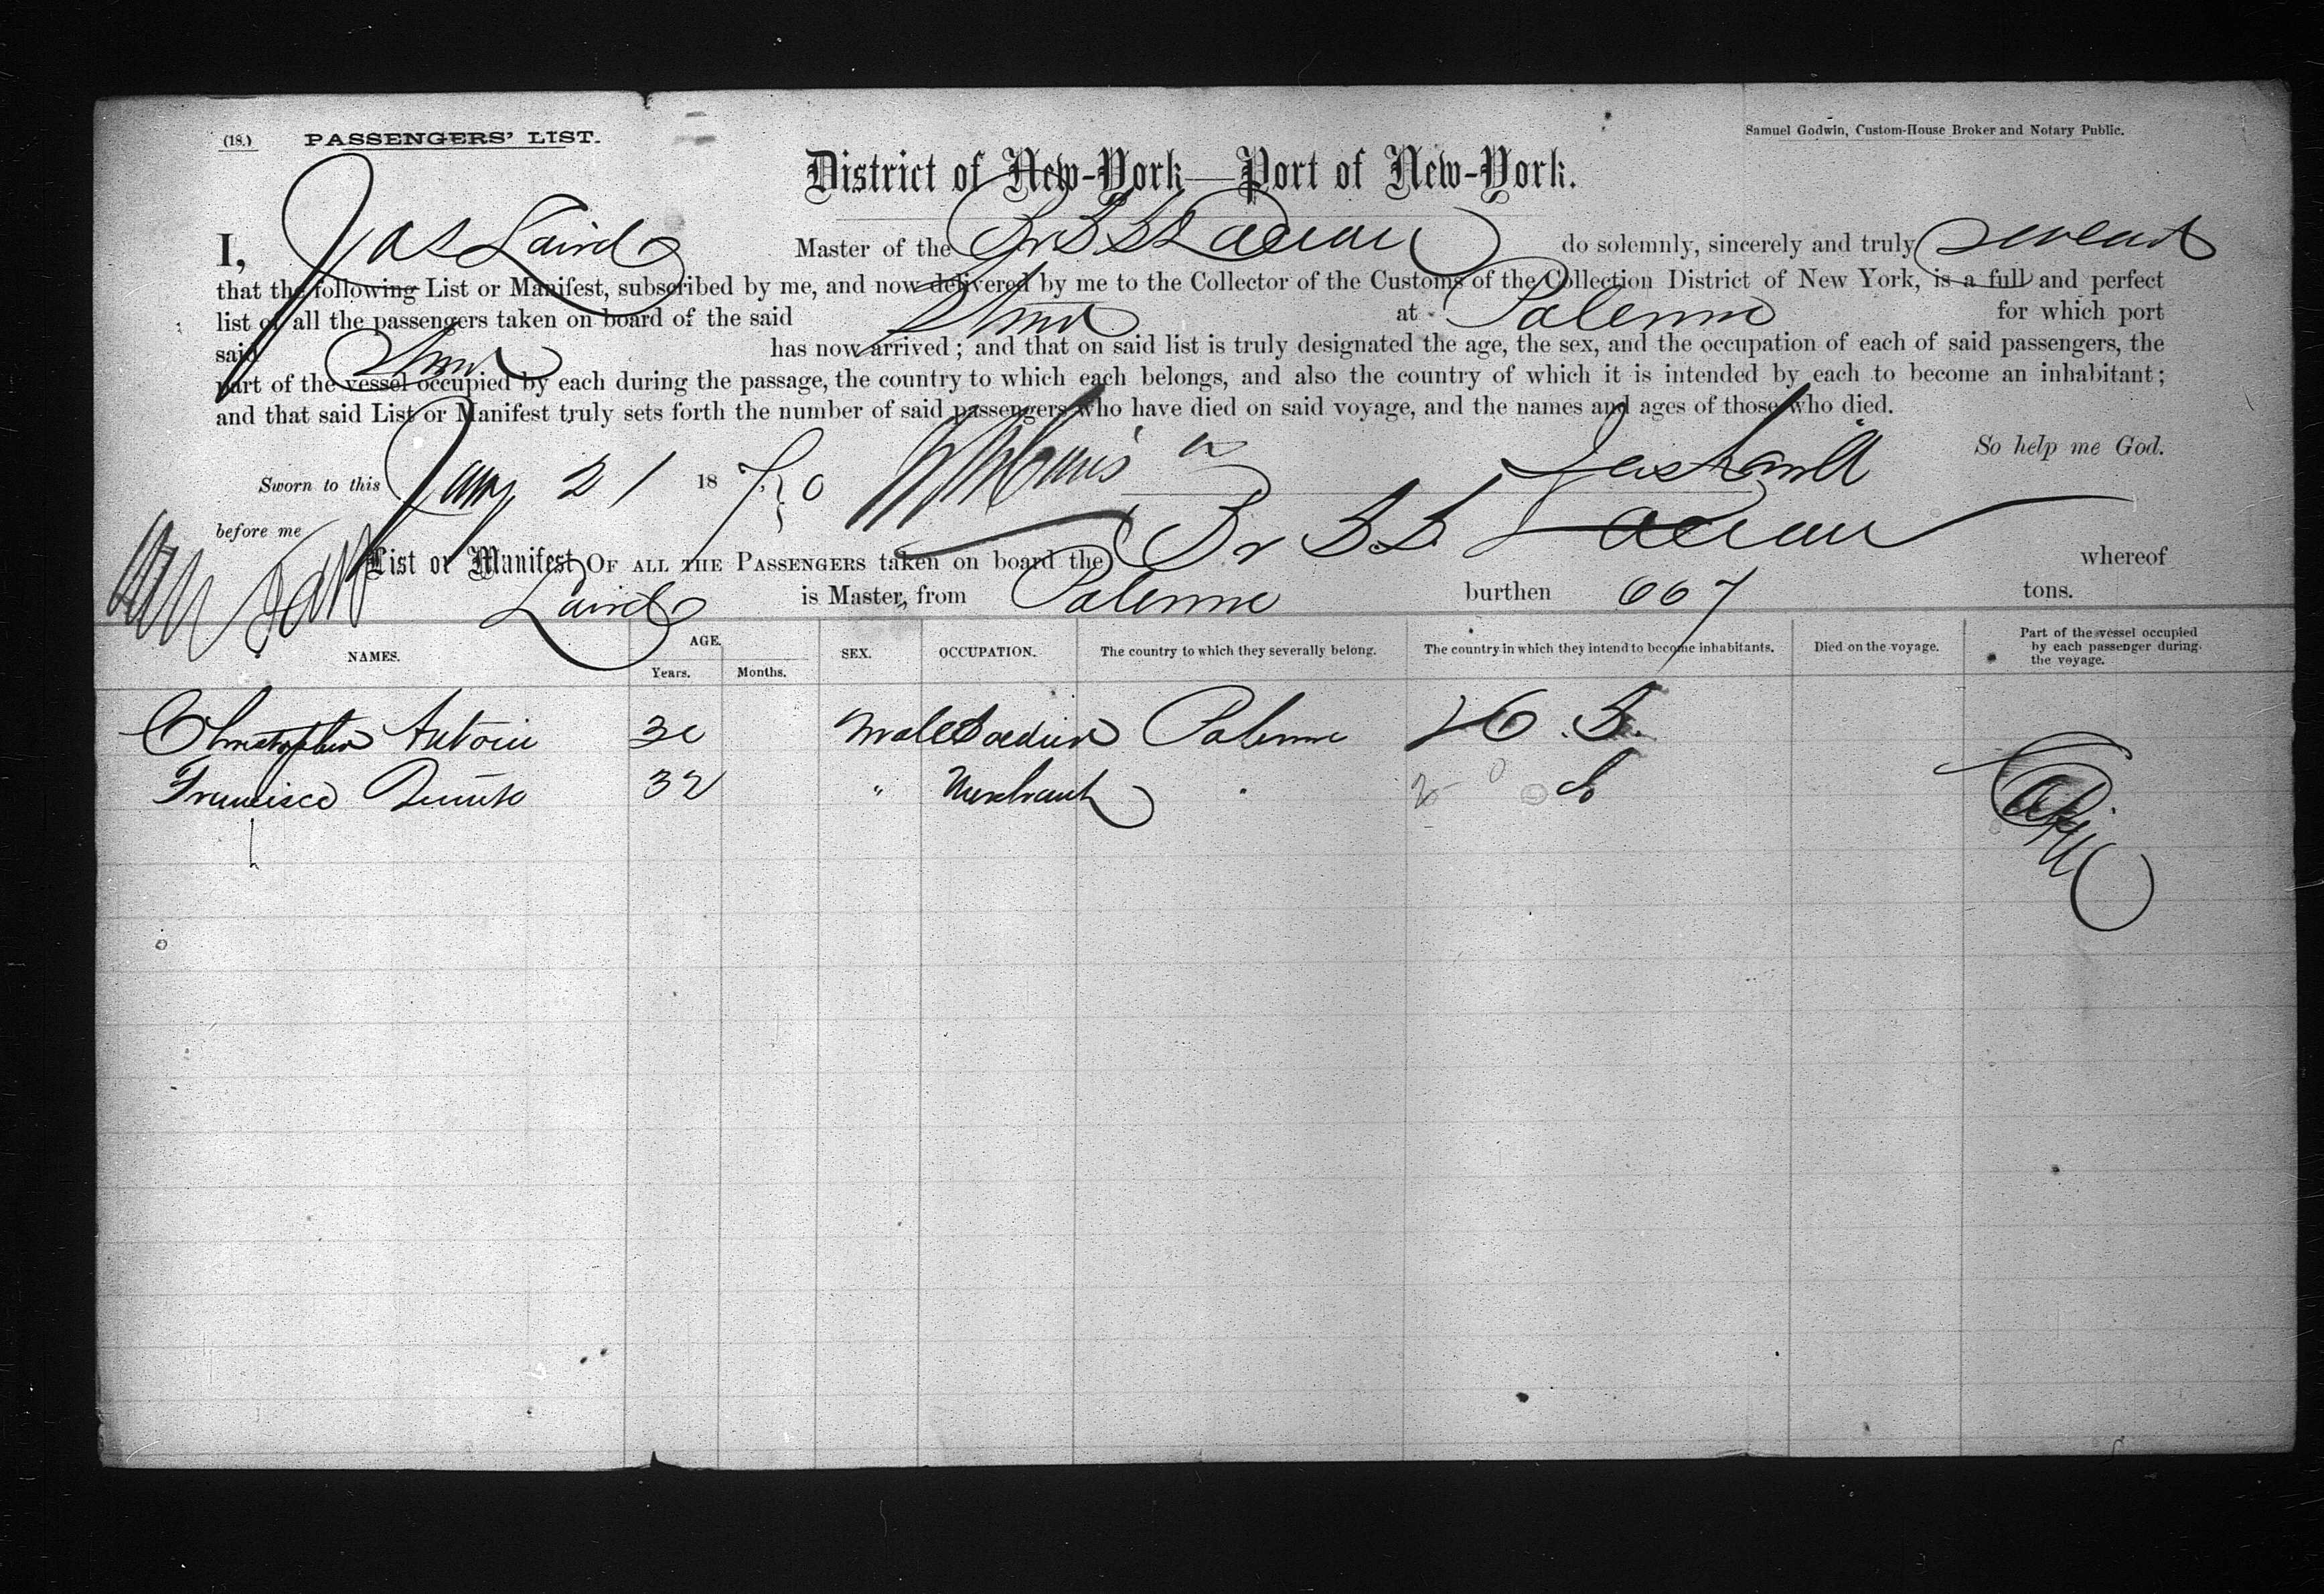 (18.) PASSENGERS' LIST.
Samuel Godwin, Custom-House Broker and Notary Public.
District of New-York—Port of New-York.
I, Jas Laird Master of the Br SS do solemnly, sincerely and truly swear
that the following List or Manifest, subscribed by me, and now delivered by me to the Collector of the Customs of the Collection District of New York, is a full and perfect
list of all the passengers taken on board of the said Stmr at Palermo for which port
said Stmr has now arrived; and that on said list is truly designated the age, the sex, and the occupation of each of said passengers, the
part of the vessel occupied by each during the passage, the country to which each belongs, and also the country of which it is intended by each to become an inhabitant;
and that said List or Manifest truly sets forth the number of said passengers who have died on said voyage, and the names and ages of those who died.
So help me God.
Sworn to this Jany 21 1870 Jas Laird
before me
List or Manifest OF ALL THE PASSENGERS taken on board the Br SS whereof
Laird is Master, from Palermo burthen 667 tons.
NAMES. AGE. Years. Months. SEX. OCCUPATION. The country to which they severally belong. The country in which they intend to become inhabitants. Died on the voyage. Part of the vessel occupied by each passenger during the voyage.
Christopher Antoin 30 Male Palermo U.S.
Francisco 32 " Merchant " do